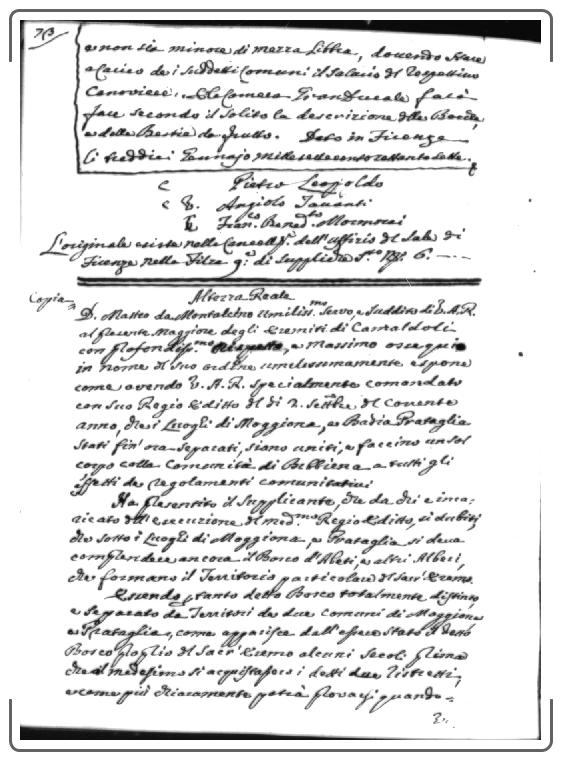 713
e non sia minore di mezza Libbra, dovendo stare
a Carico de i suddetti Comuni il Salario del respettivo
Canoviere. La Camera Granducale farà
fare secondo il Solito la descrizione delle Bocche,
e delle Bestie da frutto. Dato in Firenze
li tredici Gennajo mille settecento settanta sette.
Pietro Leopoldo
V. Angiolo Tavanti
Fran.co Bened.to Mormorai
L'originale esiste nella Cancell.a dell'uffizio del Sale di
Firenze nella Filza 9.a di Suppliche S.to N.o 6.
Copia
Altezza Reale
D. Matteo da Montalcino umiliss.mo Servo, e Suddito di V.A.R.
al presente Maggiore degli Eremiti di Camaldoli
con profondiss.mo rispetto, e massimo ossequio
in nome del Suo ordine umilissimamente espone
come avendo V. A. R. specialmente comandato
con suo Regio Editto del dì 2. Settbre del Corrente
anno, che i Luoghi di Moggiona, e Badia Prataglia
stati fin'ora separati, siano uniti, e faccino un sol
corpo colla Comunità di Bibbiena a tutti gli
effetti de regolamenti comunitativi
Ha presentito il Supplicante, che da chi è inca-
ricato dell'esecuzione del med.mo Regio Editto, si dubiti,
che sotto i Luoghi di Moggiona, e Prataglia si deva
comprendere ancora il Bosco d'Abeti, e altri Alberi,
che formano il Territorio particolare del Sacr'Eremo.
Essendo, tanto detto Bosco totalmente distinto,
e separato da Territori de due Comuni di Moggiona
e Prataglia, come apparisce dall'essere stato il detto
Bosco proprio del Sacr'Eremo alcuni Secoli prima
che il medesimo si acquistassero i detti due Distretti,
e come più chiaramente potrà provarsi quando-